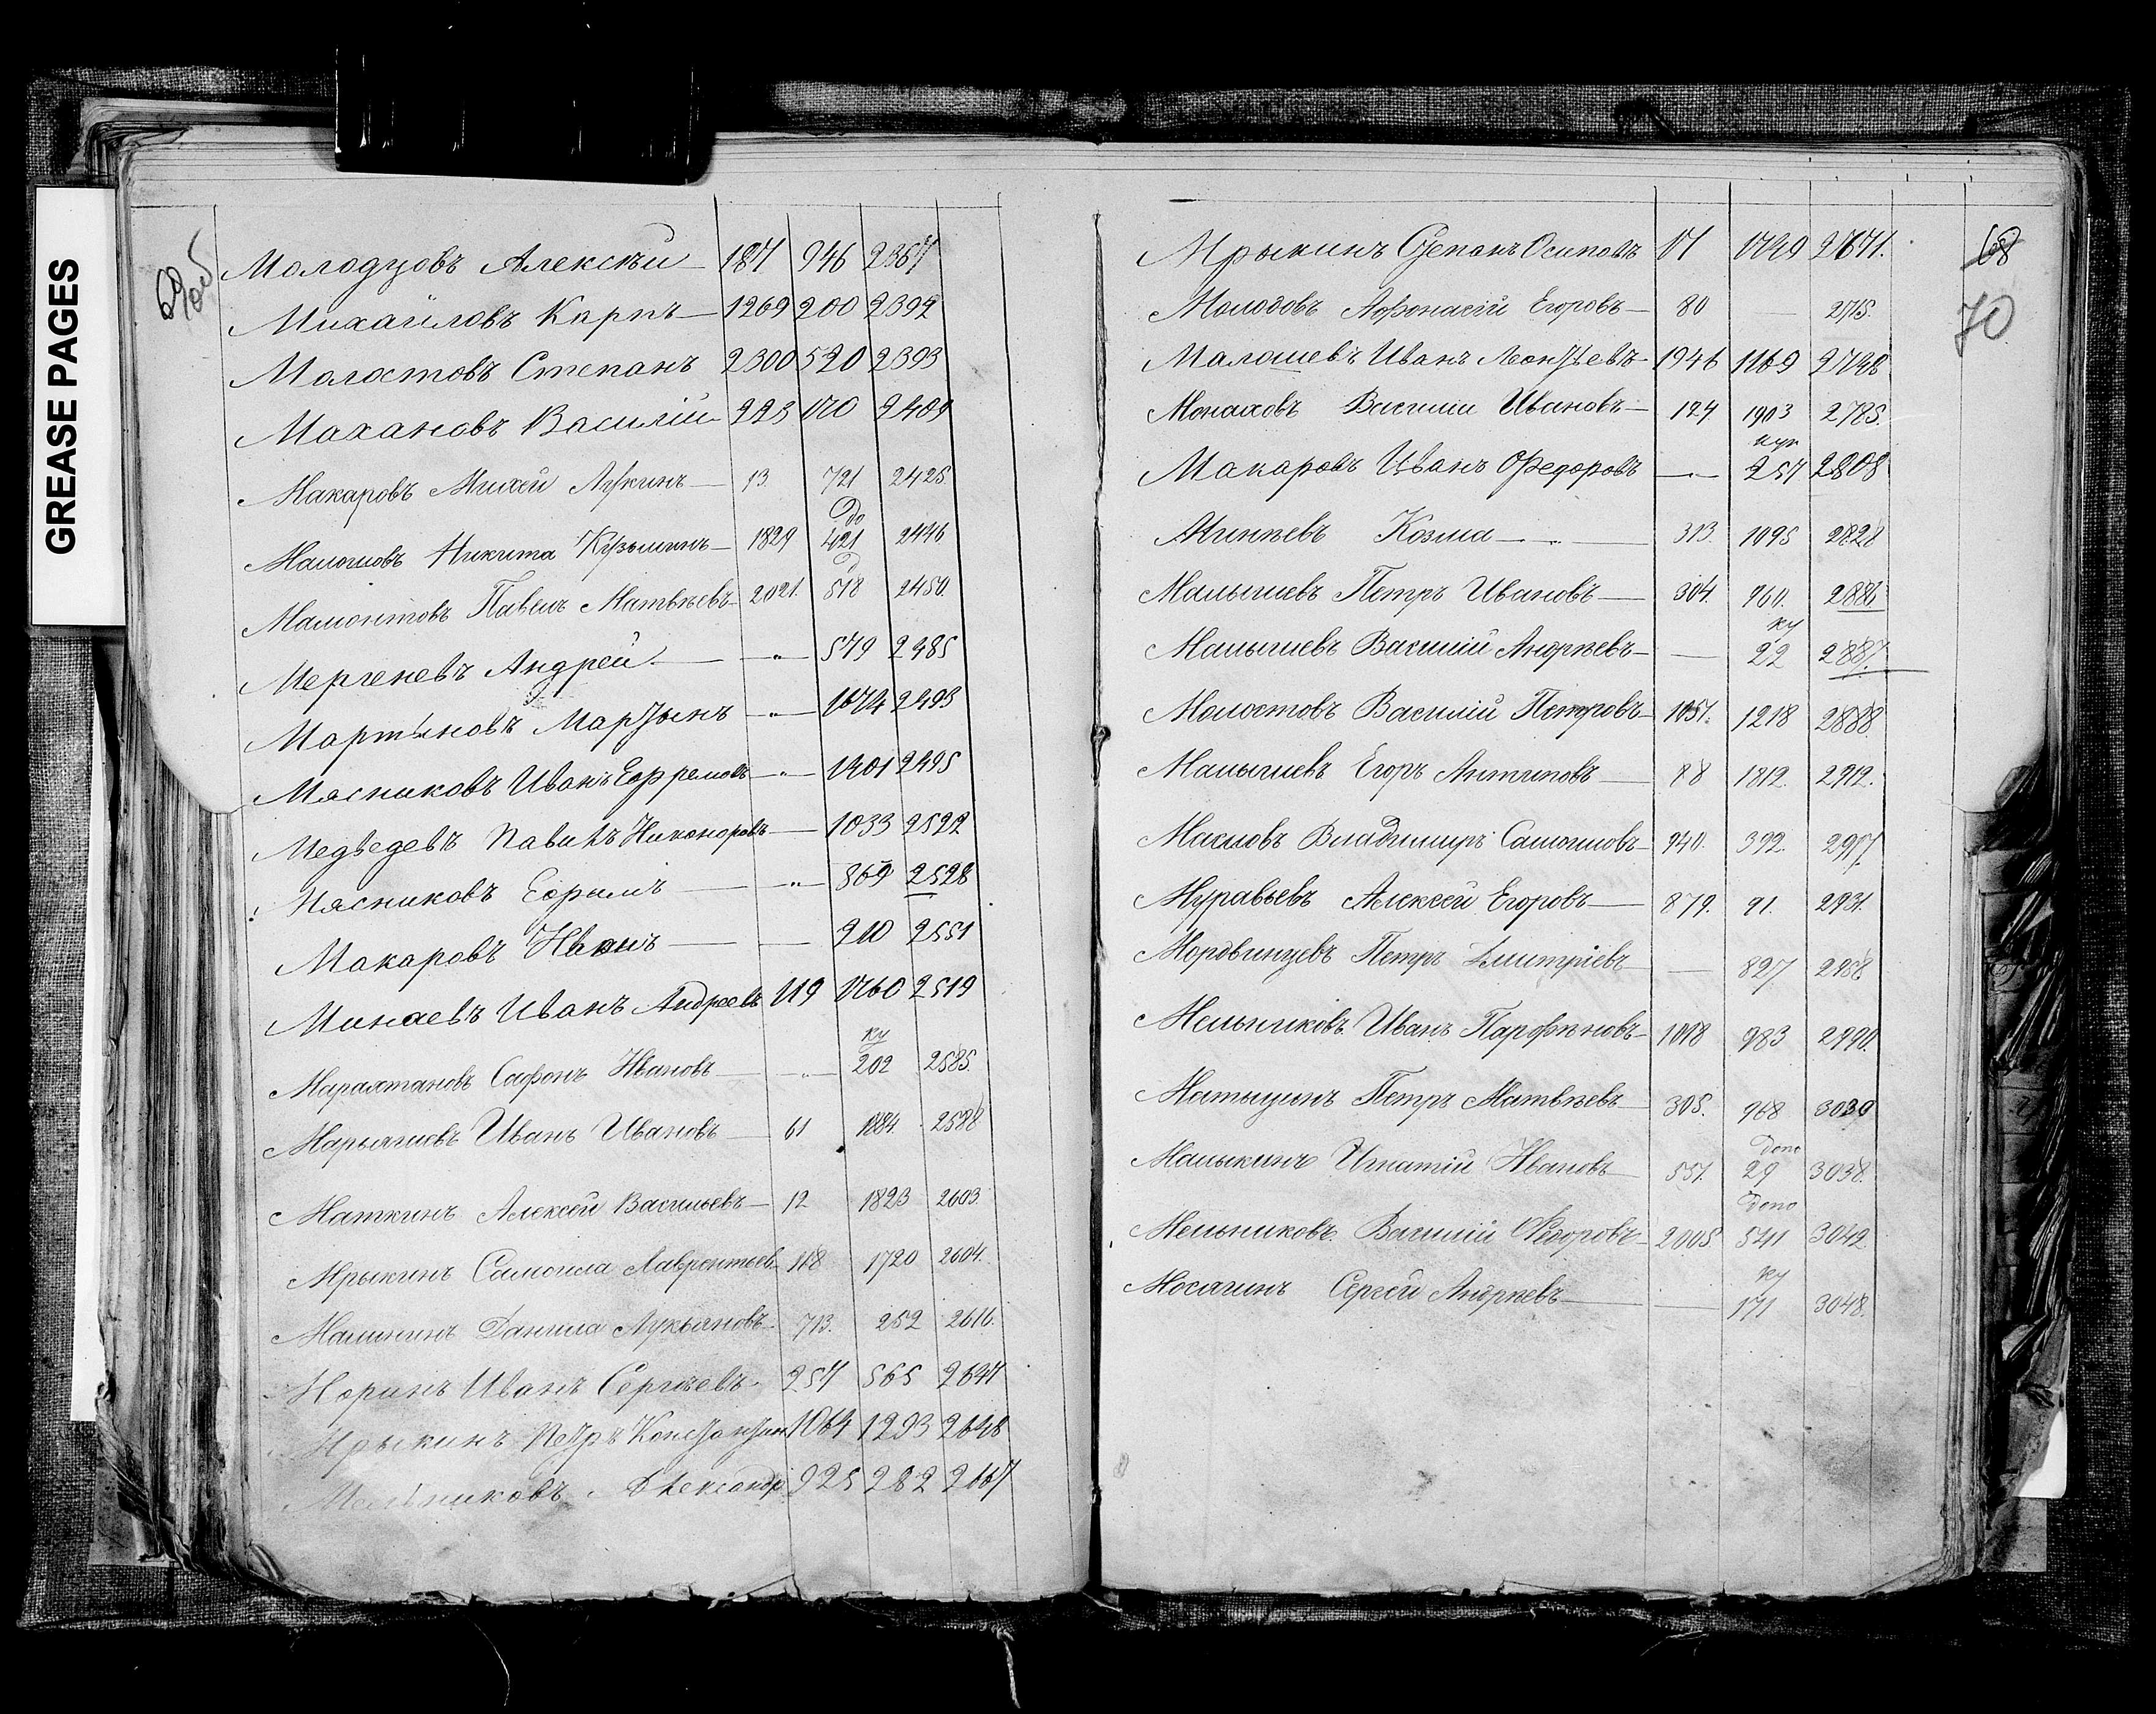 GREASE PAGES
69об
Молодцовъ Алексѣй 1871 946 2367
Михайловъ Карпъ 1269 200 2392
Молостовъ Степанъ 2300 520 2393
Махановъ Василій 223 170 2409
Макаровъ Михей Лукинъ 13. 721 2425
До
Никита Кузьминъ 1829 421 2446
Мамонтовъ Павелъ Матвѣевъ 2021. 518 2450.
Мергеневъ Андрей — „ — 579 2485
Мартыновъ Мартынъ — „ — 1674 2493
Мясниковъ Иванъ Ефремовъ — „ — 1401 2495
Медведевъ Павилъ Никоноровъ — 1033 2522
Мясниковъ Ефримъ — „ — 869 2528
Макаровъ Иванъ — 210 2551
Минаевъ Иванъ Андреевъ 119 1760 2519
ку
Сафонъ Ивановъ — „ — 202 2585.
Иванъ Ивановъ 61 1884. 2588
Маткинъ Алексѣй Васильевъ 12 1823 2603.
Мрыкинъ Самоила Лаврентьев 118 1720 2604.
Малинин Данила Лукьяновъ 713. 252 2616.
Моринъ Иванъ Сергѣевъ 257 565 2647
Мрыкинъ Петръ Константин 1064 1293 2648
Мельниковъ Александр 925 282 2667
68
70
Мрыкинъ Степанъ Осиповъ 17 1749 2671.
Молодовъ Афонасій Егоровъ 80 — 2715.
Малошевъ Иванъ Леонтьевъ 1946 1169 2748
Монаховъ Василій Ивановъ 124 1903 2785.
куп
Макаровъ Иванъ Федоровъ — 257 2808
Минѣевъ Козма — „ — 313. 1095 2828
Малышевъ Петръ Ивановъ 304. 960. 2886
ку
Малышевъ Василій Андрѣевъ — 22 2887.
Молостовъ Василій Петровъ 1057. 1218 2888.
Малышевъ Егоръ Антиповъ 88 1812. 2912.
Масловъ Владимиръ Самойловъ 940. 392. 2917
Муравьевъ Алексѣй Егоровъ 879. 91. 2931.
Мордвинцевъ Петръ Дмитріевъ — 827 2958.
Мельниковъ Иванъ Парфѣновъ 1018 983 2990.
Матыцинъ Петръ Матвѣевъ 305. 968 3039
Допо
Малыкинъ Игнатій Ивановъ 557. 29 3038.
Допо
Мельниковъ Василій Федоровъ 2005. 5211 3042
ку
Мосягинъ Сергѣй Андрѣевъ — 171 3048.